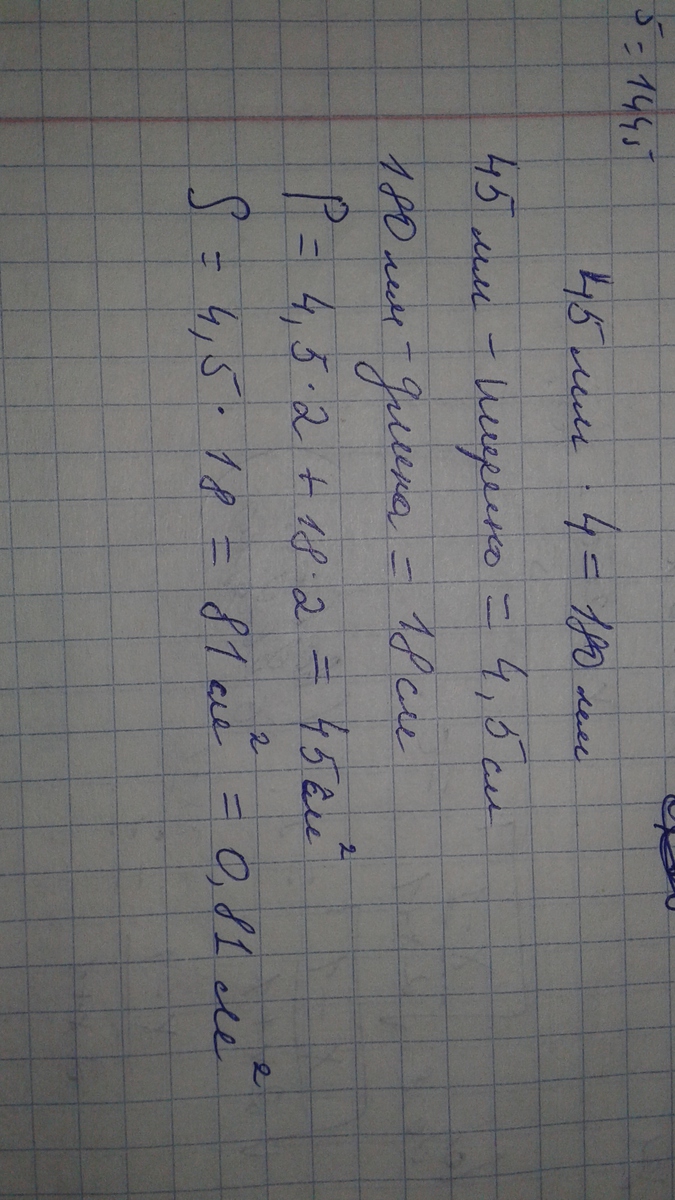 5 = 1445
45 мм · 4 = 180 мм
45 мм - ширина = 4,5 см
180 мм - длина = 18 см
P = 4,5 · 2 + 18 · 2 = 45 см²
S = 4,5 · 18 = 81 см² = 0,81 м²